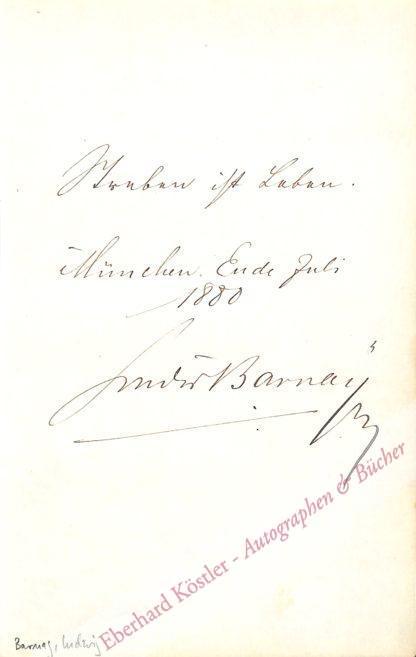 Streben ist Leben.
München. Ende Juli
1880
Ludwig Barnay
Eberhard Köstler - Autographen & Bücher
Barnay, Ludwig